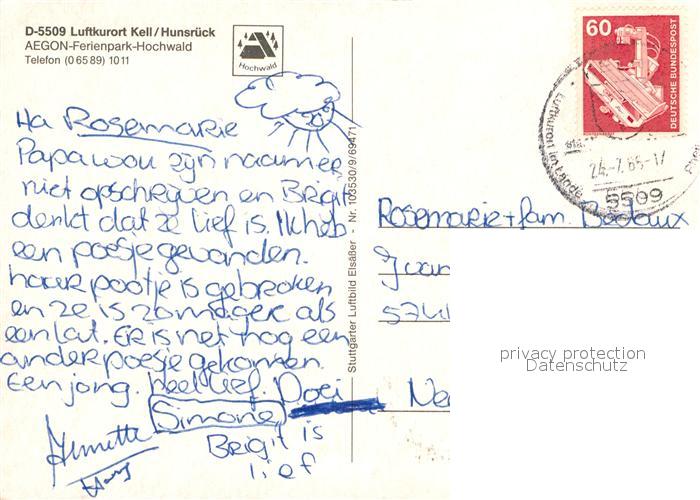 D-5509 Luftkurort Kell/Hunsrück
AEGON-Ferienpark-Hochwald
Telefon (0 65 89) 10 11
Hochwald
60
DEUTSCHE BUNDESPOST
Luftkurort im Lande
24.-7.85-17
5509
Ha Rosemarie
Papa wou zijn naam er
niet opschrijven en Brigit
denkt dat ze lief is. Ik heb
een poesje gevonden.
haar pootje is gebroken
en ze is zo mager als
een lat. Er is net nog een
ander poesje gekomen.
Een jong. heel lief. Doei
Simone
Brigit is
lief
Stuttgarter Luftbild Elsäßer - Nr. 103530/9/69471
Rosemarie + fam. Bedaux
574
Ne
privacy protection
Datenschutz